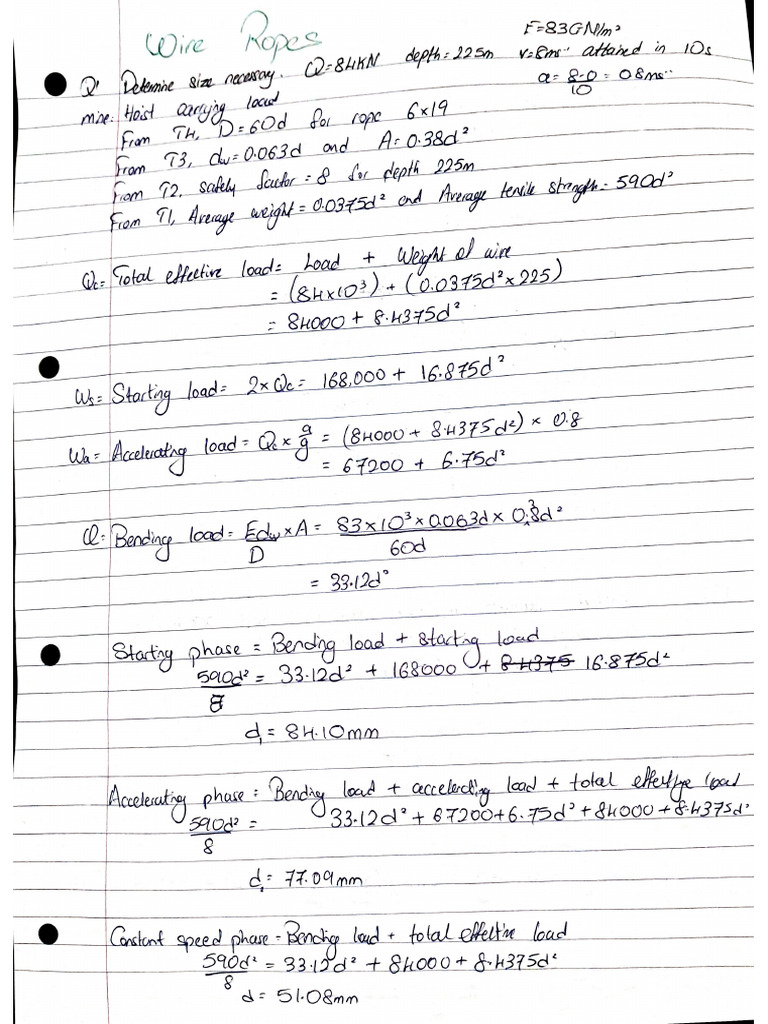 Wire Ropes
E=83GN/m²
Q1 Determine size necessary. Q=84KN depth=225m v=8ms⁻¹ attained in 10s
a = 8-0/10 = 0.8ms⁻²
mine: Hoist carrying load
From T4, D=60d for rope 6×19
From T3, dw=0.063d and A=0.38d²
From T2, safety factor=8 for depth 225m
From T1, Average weight=0.0375d² and Average tensile strength=590d²
Qc= Total effective load= Load + Weight of wire
= (84×10³) + (0.0375d²×225)
= 84000 + 8.4375d²
Ws= Starting load= 2×Qc= 168,000 + 16.875d²
Wa= Accelerating load= Qc × a/g = (84000 + 8.4375d²) × 0.8
= 67200 + 6.75d²
Q= Bending load= Edw/D ×A= 83×10³×0.063d × 0.38d²/60d
= 33.12d²
Starting phase = Bending load + Starting load
590d²/8 = 33.12d² + 168000 + 8.4375 16.875d²
d₁ = 84.10mm
Accelerating phase= Bending load + accelerating load + total effective load
590d²/8 = 33.12d² + 67200+6.75d² +84000+8.4375d²
d₁ = 77.09mm
Constant speed phase=Bending load + total effective load
590d²/8 = 33.12d² + 84000 + 8.4375d²
d= 51.08mm